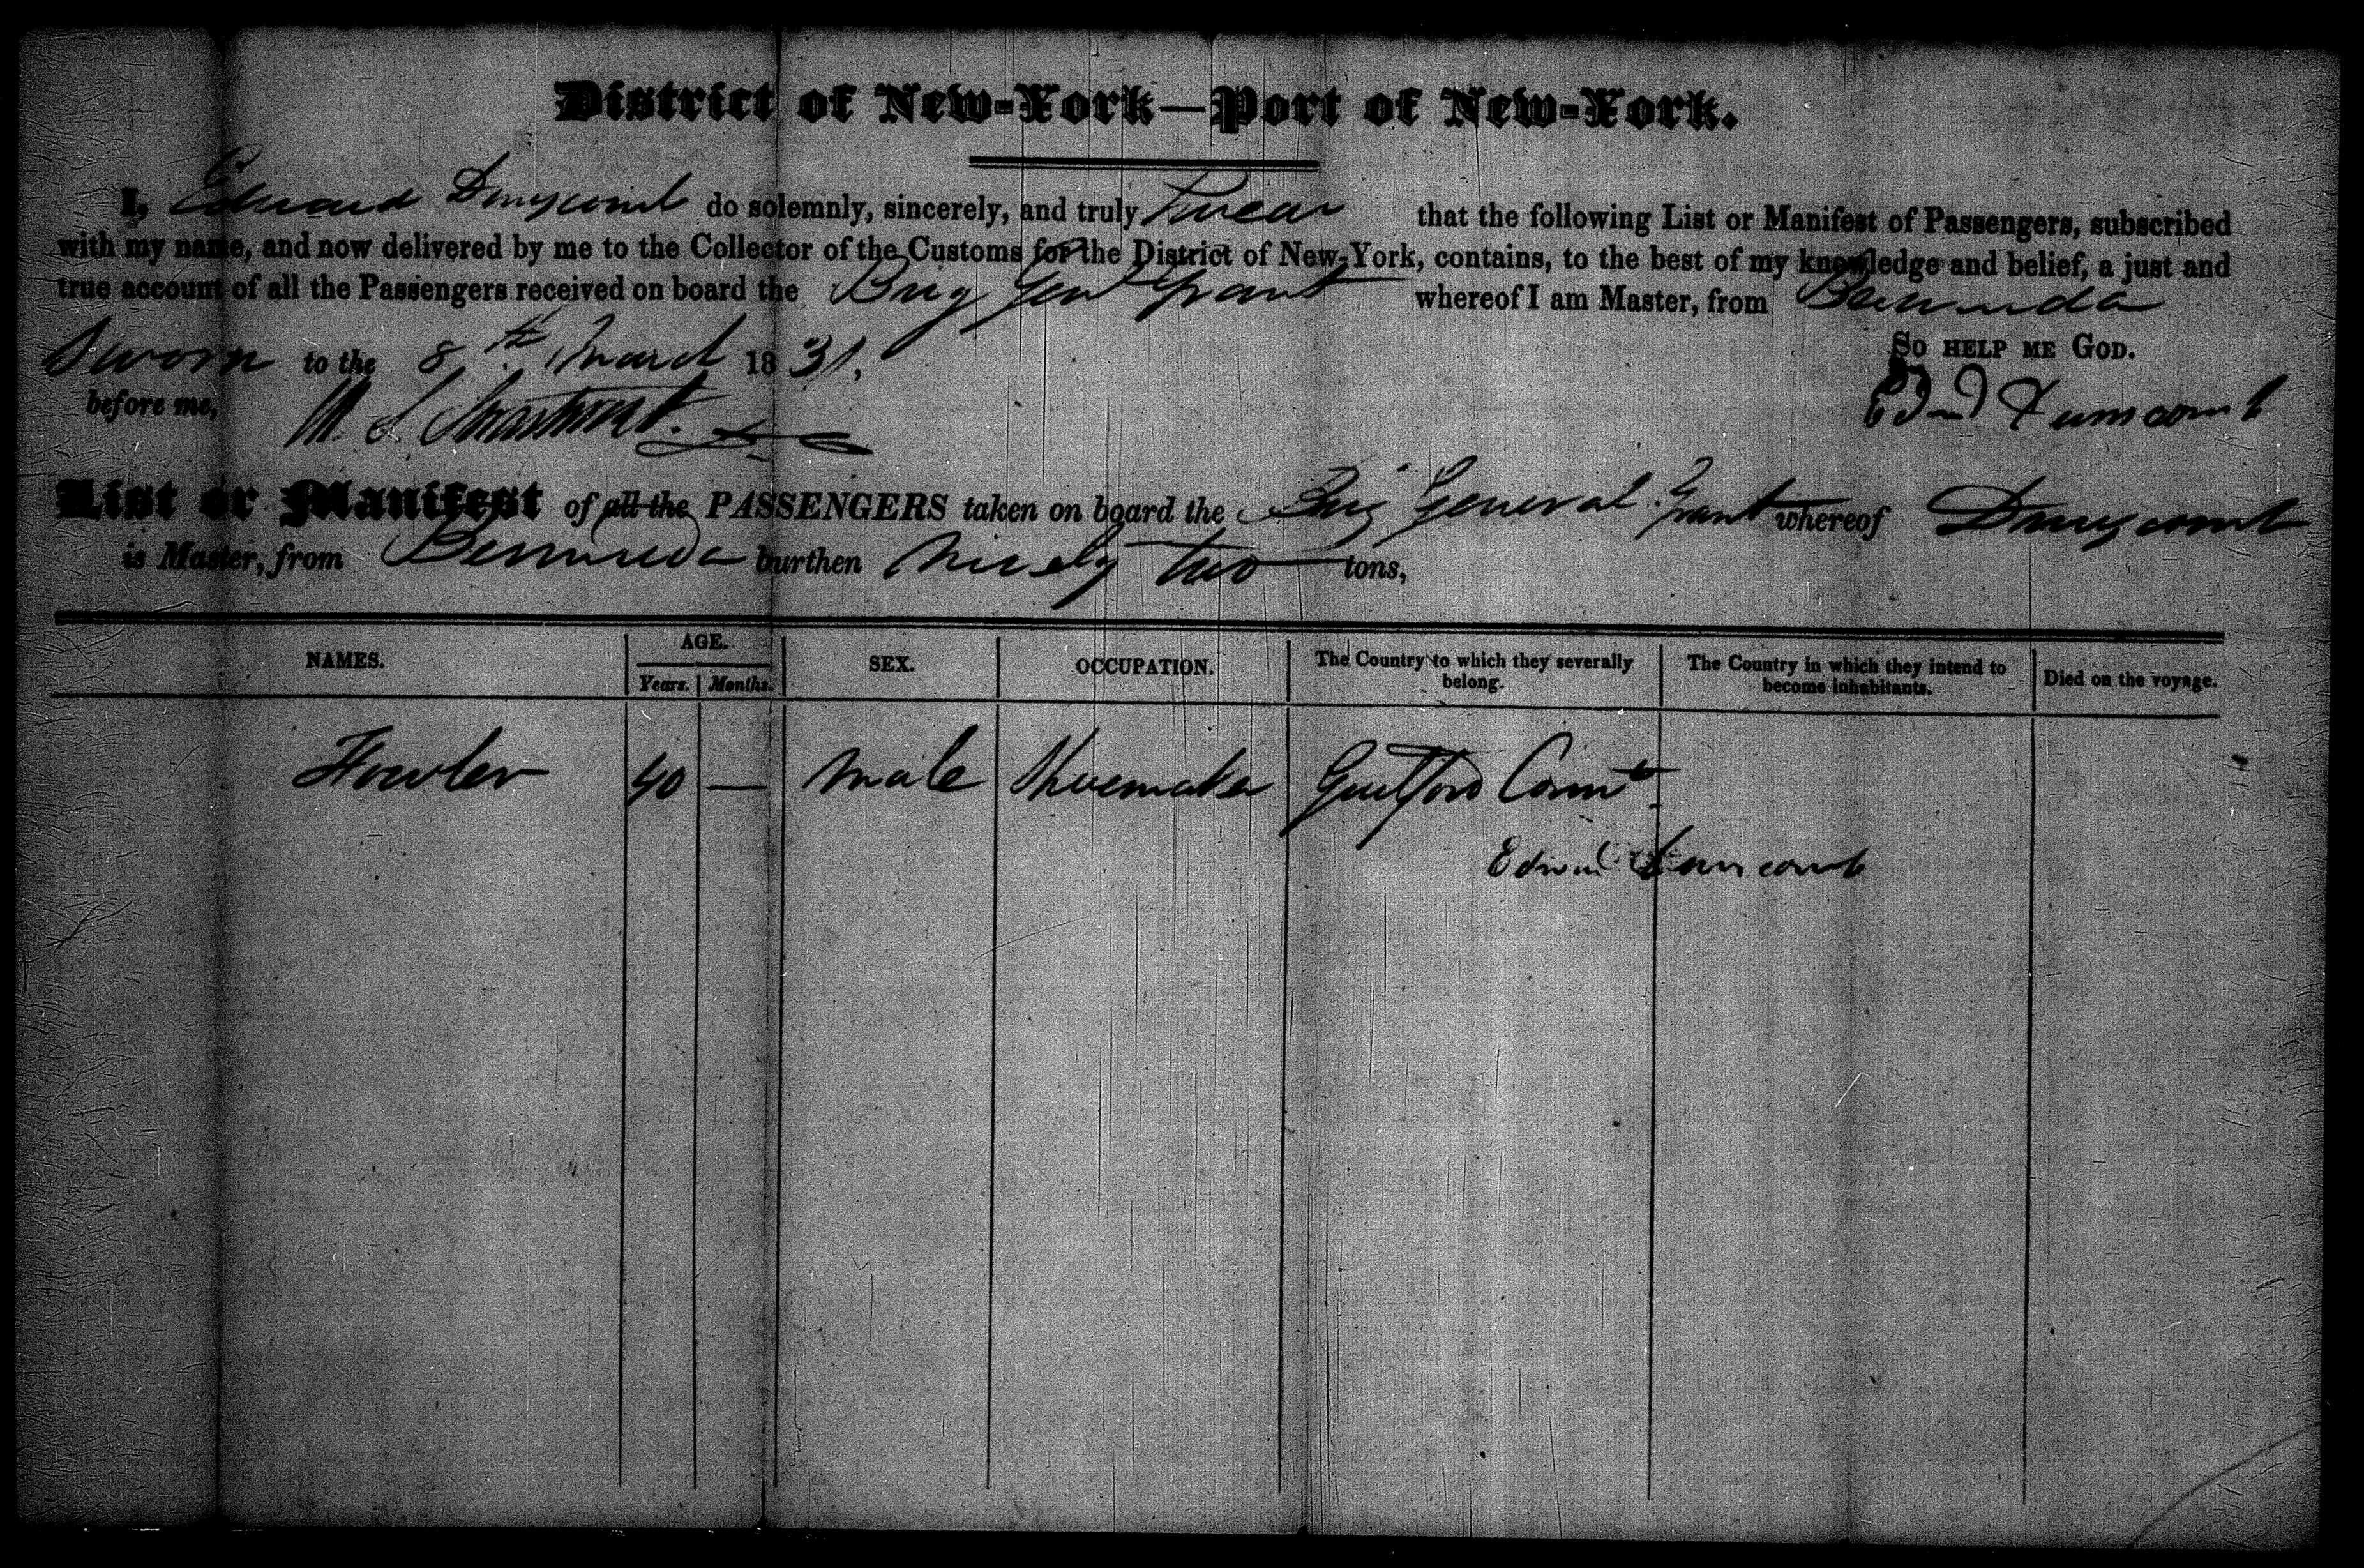 District of New-York—Port of New-York.
I, Edward Dunscomb do solemnly, sincerely, and truly swear that the following List or Manifest of Passengers, subscribed
with my name, and now delivered by me to the Collector of the Customs for the District of New-York, contains, to the best of my knowledge and belief, a just and
true account of all the Passengers received on board the Brig Genl Grant whereof I am Master, from Bermuda
Sworn to the 8th March 1831. So help me God.
before me, Edwd Dunscomb
List or Manifest of all the PASSENGERS taken on board the Brig General Grant whereof Dunscomb
is Master, from Bermuda burthen Ninety two tons,
NAMES. AGE. Years. Months. SEX. OCCUPATION. The Country to which they severally belong. The Country in which they intend to become inhabitants. Died on the voyage.
Fowler 40 — Male Shoemaker Guilford Connt.
Edwd Dunscomb